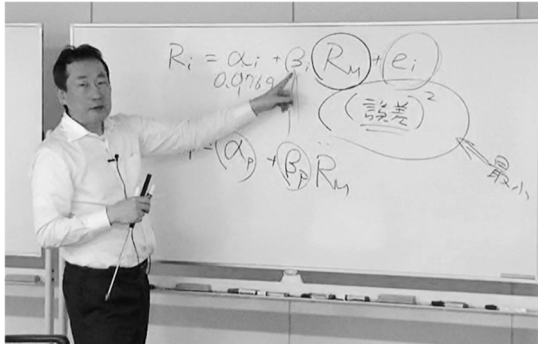 Ri = αi + βi RM + ei
0.0769
(誤差)²
= αp + βp RM
最小